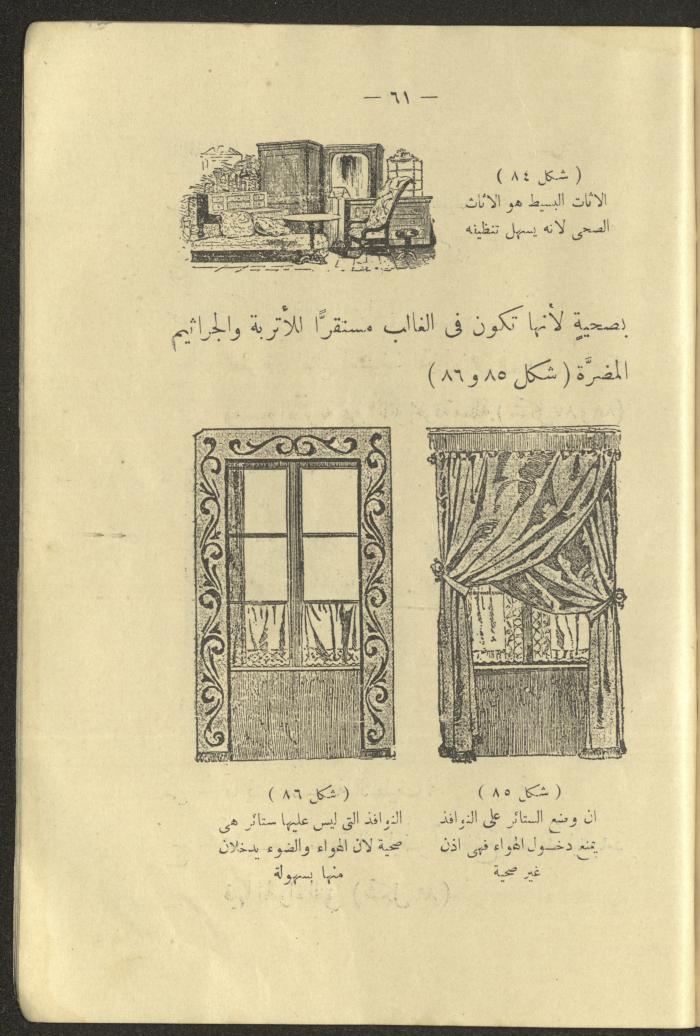 — ٦١ —
( شكل ٨٤ )
الاثاث البسيط هو الاثاث
الصحى لانه يسهل تنظيفه
بصحيةٍ لأنها تكون فى الغالب مستقرًّا للأتربة والجراثيم
المضرَّة ( شكل ٨٥ و ٨٦ )
( شكل ٨٥ )
ان وضع الستائر على النوافذ
يمنع دخول الهواء فهى اذن
غير صحية
( شكل ٨٦ )
النوافذ التى ليس عليها ستائر هى
صحية لان الهواء والضوء يدخلان
منها بسهولة